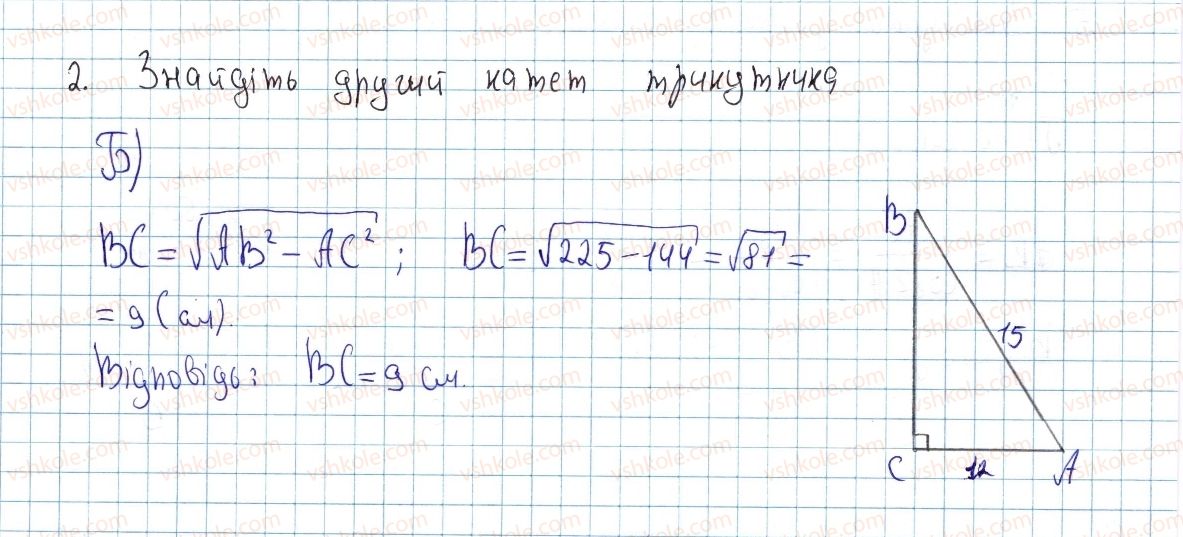 2. Знайдіть другий катет трикутника
Б)
BC = √AB² − AC² ; BC = √225 − 144 = √81 =
= 9 (см).
Відповідь: BC = 9 см.
B
15
C 12 A